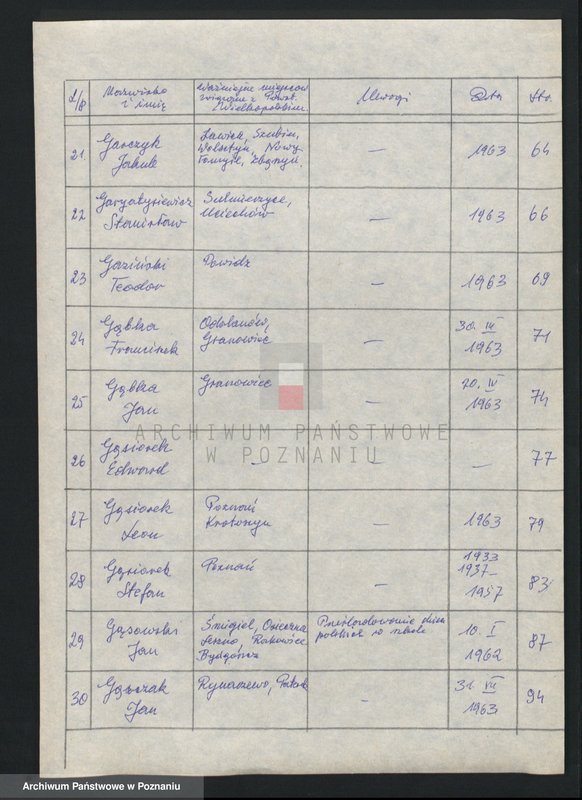 L/p Nazwisko i imię Ważniejsze miejscow. związane z Powst. Wielkopolskim Uwagi Data Str.
21. Garczyk Jakub Ławica, Szubin, Wolsztyn, Nowy Tomyśl, Zbąszyń. — 1963 64
22 Stanisław Sulmierzyce, Uciechów — 1963 66
23 Teodor Powidz — 1963 69
24 Gąbka Franciszek Odolanów, Granowiec — 30. III 1963 71
25 Gąbka Jan Granowiec — 20. IV 1963 74
26 Gąsiorek Edward — — — 77
27 Gąsiorek Leon Poznań Krotoszyn — 1963 79
28 Gąsiorek Stefan Poznań — 1933 1937 – 1957 83
29 Gąsowski Jan Śmigiel, Osieczna Leszno, Rakowice Bydgoszcz Prześladowanie dzieci polskich w szkole 10. I 1962 87
30 Gąszczak Jan Rynarzewo, — 31. VII 1963 94
ARCHIWUM PAŃSTWOWE
W POZNANIU
Archiwum Państwowe w Poznaniu